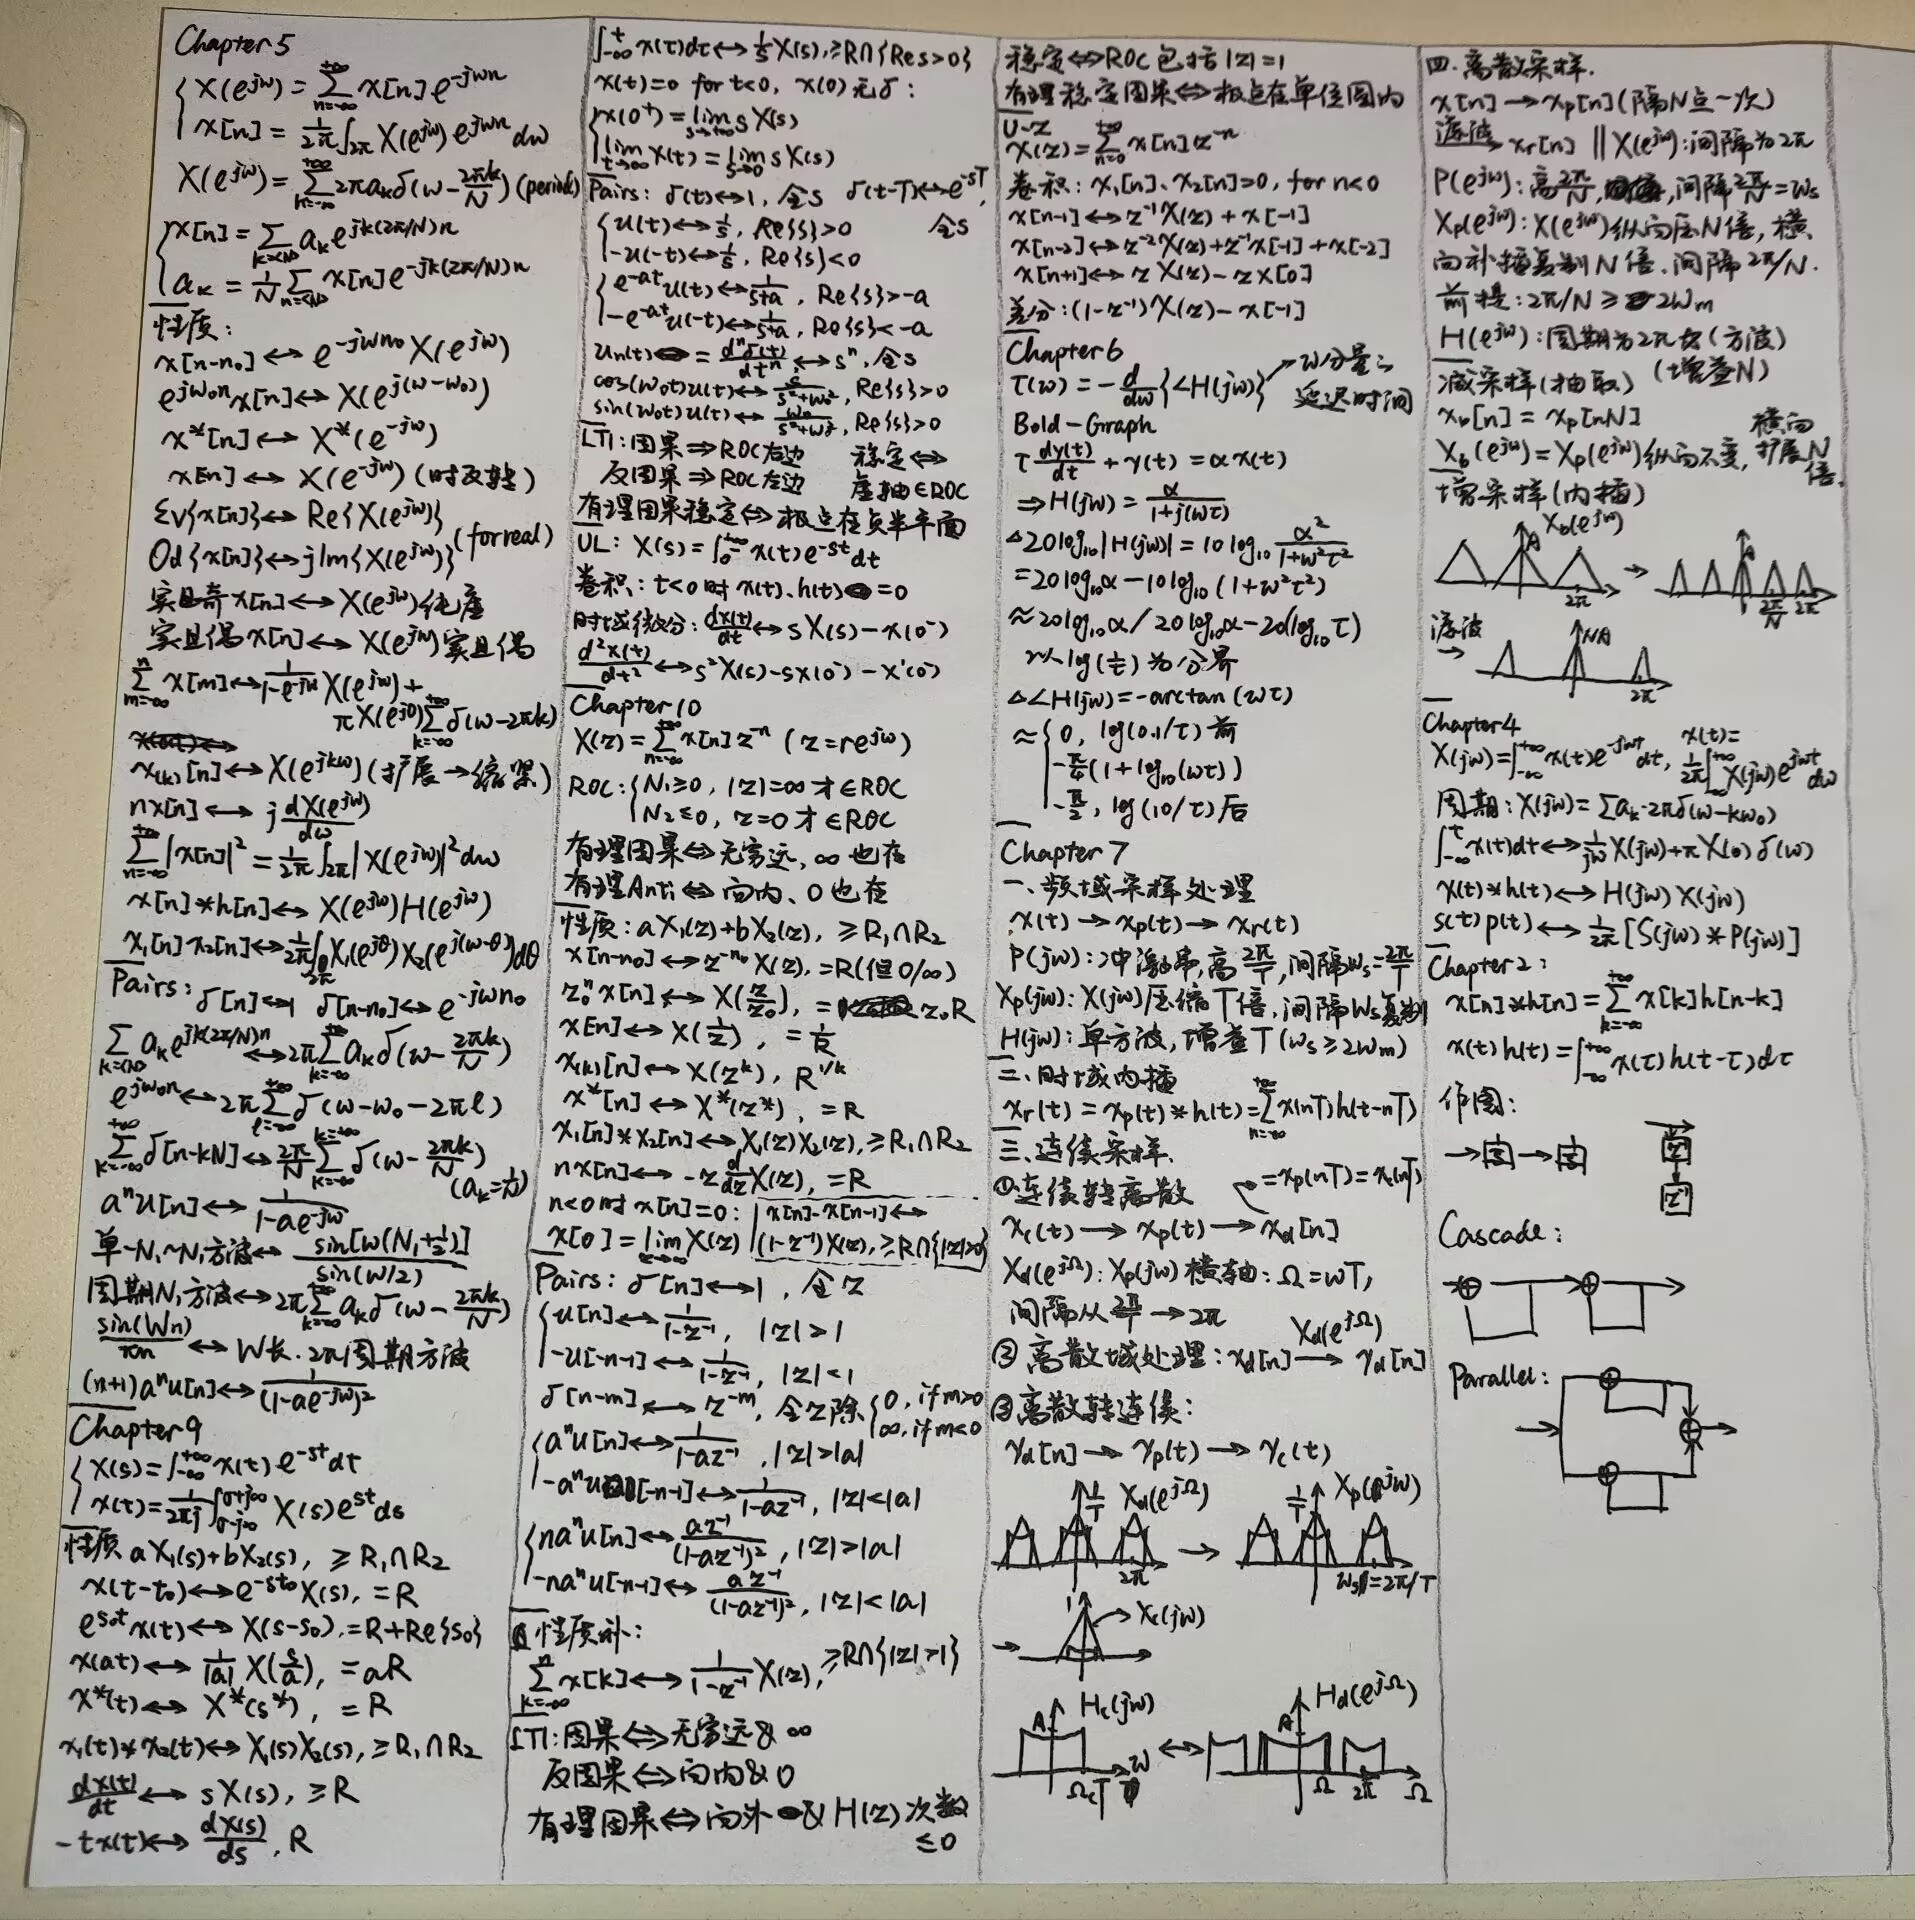 Chapter 5
X(e^{jω}) = Σ_{n=-∞}^{+∞} x[n] e^{-jωn}
x[n] = 1/2π ∫_{2π} X(e^{jω}) e^{jωn} dω
X(e^{jω}) = Σ_{k=-∞}^{+∞} 2πa_k δ(ω - 2πk/N) (periodic)
x[n] = Σ_{k=<N>} a_k e^{jk(2π/N)n}
a_k = 1/N Σ_{n=<N>} x[n] e^{-jk(2π/N)n}
性质:
x[n-n₀] ↔ e^{-jωn₀} X(e^{jω})
e^{jω₀n} x[n] ↔ X(e^{j(ω-ω₀)})
x*[n] ↔ X*(e^{-jω})
x[-n] ↔ X(e^{-jω}) (时反转)
Ev{x[n]} ↔ Re{X(e^{jω})}
Od{x[n]} ↔ jIm{X(e^{jω})} (for real)
实且奇x[n] ↔ X(e^{jω})纯虚
实且偶x[n] ↔ X(e^{jω})实且偶
Σ_{m=-∞}^{n} x[m] ↔ 1/(1-e^{-jω}) X(e^{jω}) +
πX(e^{j0}) Σ_{k=-∞}^{+∞} δ(ω-2πk)
x_{(k)}[n] ↔ X(e^{jkω}) (扩展→缩紧)
nx[n] ↔ j dX(e^{jω})/dω
Σ_{n=-∞}^{+∞} |x[n]|² = 1/2π ∫_{2π} |X(e^{jω})|² dω
x[n]*h[n] ↔ X(e^{jω})H(e^{jω})
x₁[n]x₂[n] ↔ 1/2π ∫_{2π} X₁(e^{jθ})X₂(e^{j(ω-θ)})dθ
Pairs: δ[n]↔1 δ[n-n₀] ↔ e^{-jωn₀}
Σ_{k=<N>} a_k e^{jk(2π/N)n} ↔ 2π Σ_{k=-∞}^{+∞} a_k δ(ω - 2πk/N)
e^{jω₀n} ↔ 2π Σ_{l=-∞}^{+∞} δ(ω-ω₀-2πl)
Σ_{k=-∞}^{+∞} δ[n-kN] ↔ 2π/N Σ_{k=-∞}^{k=+∞} δ(ω - 2πk/N)
(a_k = 1/N)
aⁿu[n] ↔ 1/(1-ae^{-jω})
单-N₁~N₁方波 ↔ sin[ω(N₁+1/2)]/sin(ω/2)
周期N₁方波 ↔ 2π Σ_{k=-∞}^{+∞} a_k δ(ω - 2πk/N)
sin(Wn)/πn ↔ W长.2π周期方波
(n+1)aⁿu[n] ↔ 1/(1-ae^{-jω})²
Chapter 9
X(s) = ∫_{-∞}^{+∞} x(t) e^{-st} dt
x(t) = 1/2πj ∫_{σ-j∞}^{σ+j∞} X(s) e^{st} ds
性质 aX₁(s)+bX₂(s), ≥R₁∩R₂
x(t-t₀) ↔ e^{-st₀} X(s), =R
e^{s₀t} x(t) ↔ X(s-s₀), =R+Re{s₀}
x(at) ↔ 1/|a| X(s/a), =aR
x*(t) ↔ X*(s*), =R
x₁(t)*x₂(t) ↔ X₁(s)X₂(s), ≥R₁∩R₂
dx(t)/dt ↔ sX(s), ≥R
-tx(t) ↔ dX(s)/ds, R
∫_{-∞}^{t} x(τ)dτ ↔ 1/s X(s), ≥R∩{Res>0}
x(t)=0 for t<0, x(0)无δ:
x(0⁺) = lim_{s→+∞} sX(s)
lim_{t→∞} x(t) = lim_{s→0} sX(s)
Pairs: δ(t)↔1, 全s δ(t-T)↔e^{-sT},
全s
u(t) ↔ 1/s, Re{s}>0
-u(-t) ↔ 1/s, Re{s}<0
e^{-at}u(t) ↔ 1/(s+a), Re{s}>-a
-e^{-at}u(-t) ↔ 1/(s+a), Re{s}<-a
u_n(t) = dⁿδ(t)/dtⁿ ↔ sⁿ, 全s
cos(ω₀t)u(t) ↔ s/(s²+ω₀²), Re{s}>0
sin(ω₀t)u(t) ↔ ω₀/(s²+ω₀²), Re{s}>0
LTI: 因果⇒ROC右边 稳定⇔
反因果⇒ROC左边 虚轴∈ROC
有理因果稳定⇔极点在负半平面
UL: X(s) = ∫_{0⁻}^{+∞} x(t)e^{-st}dt
卷积: t<0时x(t)、h(t)=0
时域微分: dx(t)/dt ↔ sX(s)-x(0⁻)
d²x(t)/dt² ↔ s²X(s)-sx(0⁻)-x'(0⁻)
Chapter 10
X(z) = Σ_{n=-∞}^{+∞} x[n]z^{-n} (z=re^{jω})
ROC: N₁≥0, |z|=∞才∈ROC
N₂≤0, z=0才∈ROC
有理因果⇔无穷远,∞也在
有理Anti⇔向内、0也在
性质: aX₁(z)+bX₂(z), ≥R₁∩R₂
x[n-n₀] ↔ z^{-n₀}X(z), =R(但0/∞)
z₀ⁿx[n] ↔ X(z/z₀), = z₀R
x[-n] ↔ X(1/z), = 1/R
x_{(k)}[n] ↔ X(z^k), R^{1/k}
x*[n] ↔ X*(z*), =R
x₁[n]*x₂[n] ↔ X₁(z)X₂(z), ≥R₁∩R₂
nx[n] ↔ -z d/dz X(z), =R
n<0时x[n]=0: x[n]-x[n-1] ↔
x[0] = lim_{z→∞} X(z) (1-z^{-1})X(z), ≥R∩{|z|>0}
Pairs: δ[n]↔1, 全z
u[n] ↔ 1/(1-z^{-1}), |z|>1
-u[-n-1] ↔ 1/(1-z^{-1}), |z|<1
δ[n-m] ↔ z^{-m}, 全z除{0, if m>0
∞, if m<0
aⁿu[n] ↔ 1/(1-az^{-1}), |z|>|a|
-aⁿu[-n-1] ↔ 1/(1-az^{-1}), |z|<|a|
naⁿu[n] ↔ az^{-1}/(1-az^{-1})², |z|>|a|
-naⁿu[-n-1] ↔ az^{-1}/(1-az^{-1})², |z|<|a|
性质补:
Σ_{k=-∞}^{n} x[k] ↔ 1/(1-z^{-1}) X(z), ≥R∩{|z|>1}
LTI: 因果⇔无穷远&∞
反因果⇔向内&0
有理因果⇔向外&H(z)次数
≤0
稳定⇔ROC包括|z|=1
有理稳定因果⇔极点在单位圆内
U-Z
X(z) = Σ_{n=0}^{+∞} x[n]z^{-n}
卷积: x₁[n]、x₂[n]=0, for n<0
x[n-1] ↔ z^{-1}X(z)+x[-1]
x[n-2] ↔ z^{-2}X(z)+z^{-1}x[-1]+x[-2]
x[n+1] ↔ zX(z)-zx[0]
差分: (1-z^{-1})X(z)-x[-1]
Chapter 6
τ(ω) = -d/dω{∠H(jω)} → ω分量之
延迟时间
Bold-Graph
τ dy(t)/dt + y(t) = αx(t)
⇒H(jω) = α/(1+j(ωτ))
△20log₁₀|H(jω)| = 10log₁₀ α²/(1+ω²τ²)
=20log₁₀α-10log₁₀(1+ω²τ²)
≈20log₁₀α/20log₁₀α-20(log₁₀τ)
以log(1/τ)为分界
△∠H(jω)=-arctan(ωτ)
≈{0, log(0.1/τ)前
-π/4(1+log₁₀(ωτ))
-π/2, log(10/τ)后
Chapter 7
一、频域采样处理
x(t)→x_p(t)→x_r(t)
P(jω):冲激串,高2π/T,间隔ω_s=2π/T
X_p(jω): X(jω)压缩T倍,间隔ω_s复制
H(jω): 单方波,增益T(ω_s≥2ω_m)
二、时域内插
x_r(t) = x_p(t)*h(t)=Σ_{n=-∞}^{+∞} x(nT)h(t-nT)
三、连续采样.
①连续转离散 =x_p(nT)=x_c(nT)
x_c(t)→x_p(t)→x_d[n]
X_d(e^{jΩ}): X_p(jω)横轴: Ω=ωT,
间隔从2π/T→2π
②离散域处理: x_d[n] → y_d[n]
X_d(e^{jΩ})
③离散转连续:
y_d[n]→y_p(t)→y_c(t)
1/T X_d(e^{jΩ}) 1/T X_p(jω)
2π ω_s=2π/T
1 X_c(jω)
A H_c(jω) A H_d(e^{jΩ})
Ω_cT ω Ω 2π Ω
四.离散采样.
x[n]→x_p[n](隔N点一次)
滤波→x_r[n] ‖X(e^{jω}):间隔为2π
P(e^{jω}):高2π/N,间隔2π/N=ω_s
X_p(e^{jω}): X(e^{jω})纵向压N倍,横
向补插复制N倍.间隔2π/N.
前提: 2π/N≥2ω_m
H(e^{jω}):周期为2π(方波)
(增益N)
减采样(抽取)
x_b[n] = x_p[nN]
X_b(e^{jω})=X_p(e^{jω})纵向不变, 横向扩展N倍.
增采样(内插)
X_b(e^{jω})
A 2π → A 2π/N 2π
滤波
→ NA 2π
Chapter 4
X(jω)=∫_{-∞}^{+∞} x(t)e^{-jωt}dt, x(t)= 1/2π ∫_{-∞}^{+∞} X(jω)e^{jωt}dω
周期: X(jω)=Σa_k·2πδ(ω-kω₀)
∫_{-∞}^{t} x(t)dt ↔ 1/jω X(jω)+πX(0)δ(ω)
x(t)*h(t) ↔ H(jω)X(jω)
s(t)p(t) ↔ 1/2π [S(jω)*P(jω)]
Chapter 2:
x[n]*h[n] = Σ_{k=-∞}^{+∞} x[k]h[n-k]
x(t)h(t) = ∫_{-∞}^{+∞} x(τ)h(t-τ)dτ
作图:
Cascade:
Parallel: